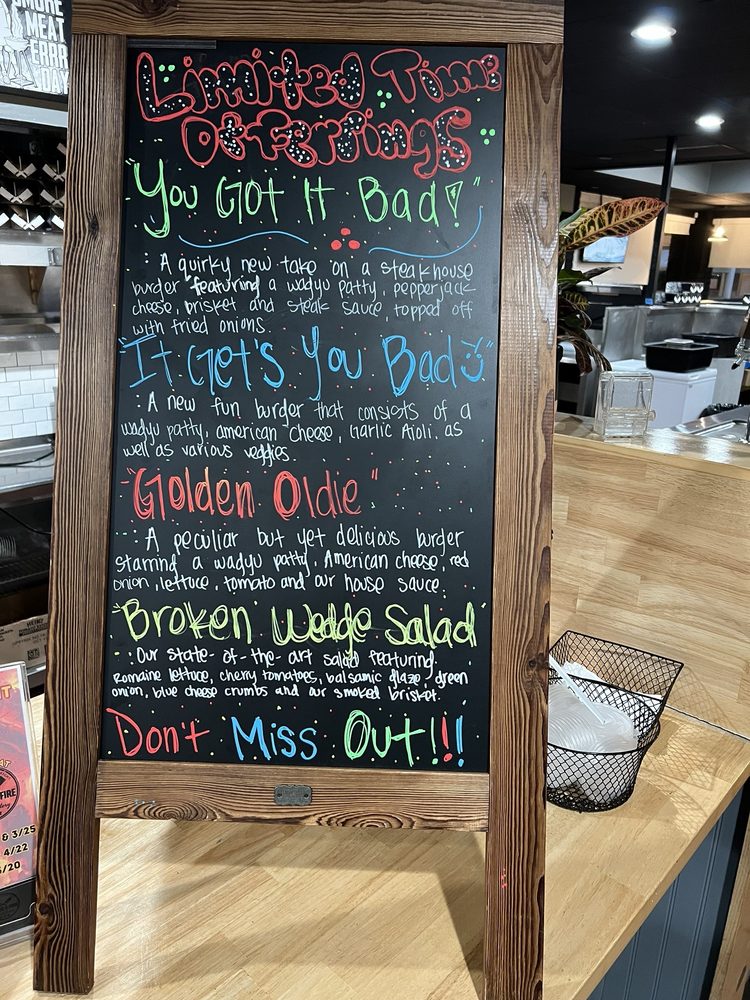 MORE
MEAT
ERRR
DAY
Limited Time
Offerrings
"You Got It Bad!"
: A quirky new take on a steakhouse
burger featuring a wagyu patty, pepperjack
cheese, brisket and steak sauce, topped off
with fried onions.
"It Get's You Bad"
: A new fun burger that consists of a
wagyu patty, american cheese, Garlic Aioli. as
well as various veggies.
"Golden Oldie"
: A peculiar but yet delicious burger
starring a wagyu patty, American cheese, red
onion, lettuce, tomato and our house sauce.
"Broken Wedge Salad"
: Our state-of-the-art salad featuring
Romaine lettuce, cherry tomatoes, balsamic glaze, green
onion, blue cheese crumbs and our smoked brisket.
Don't Miss Out!!!
FIRE
& 3/25
4/22
/20